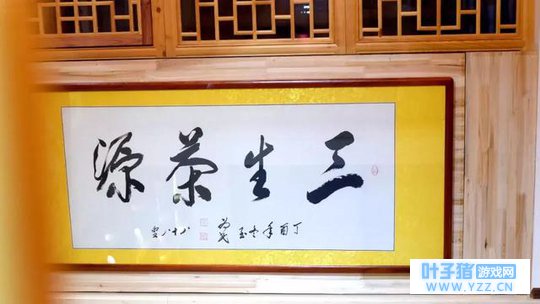 三生茶源
丁酉年
八十八叟
叶子猪游戏网
WWW.YZZ.CN